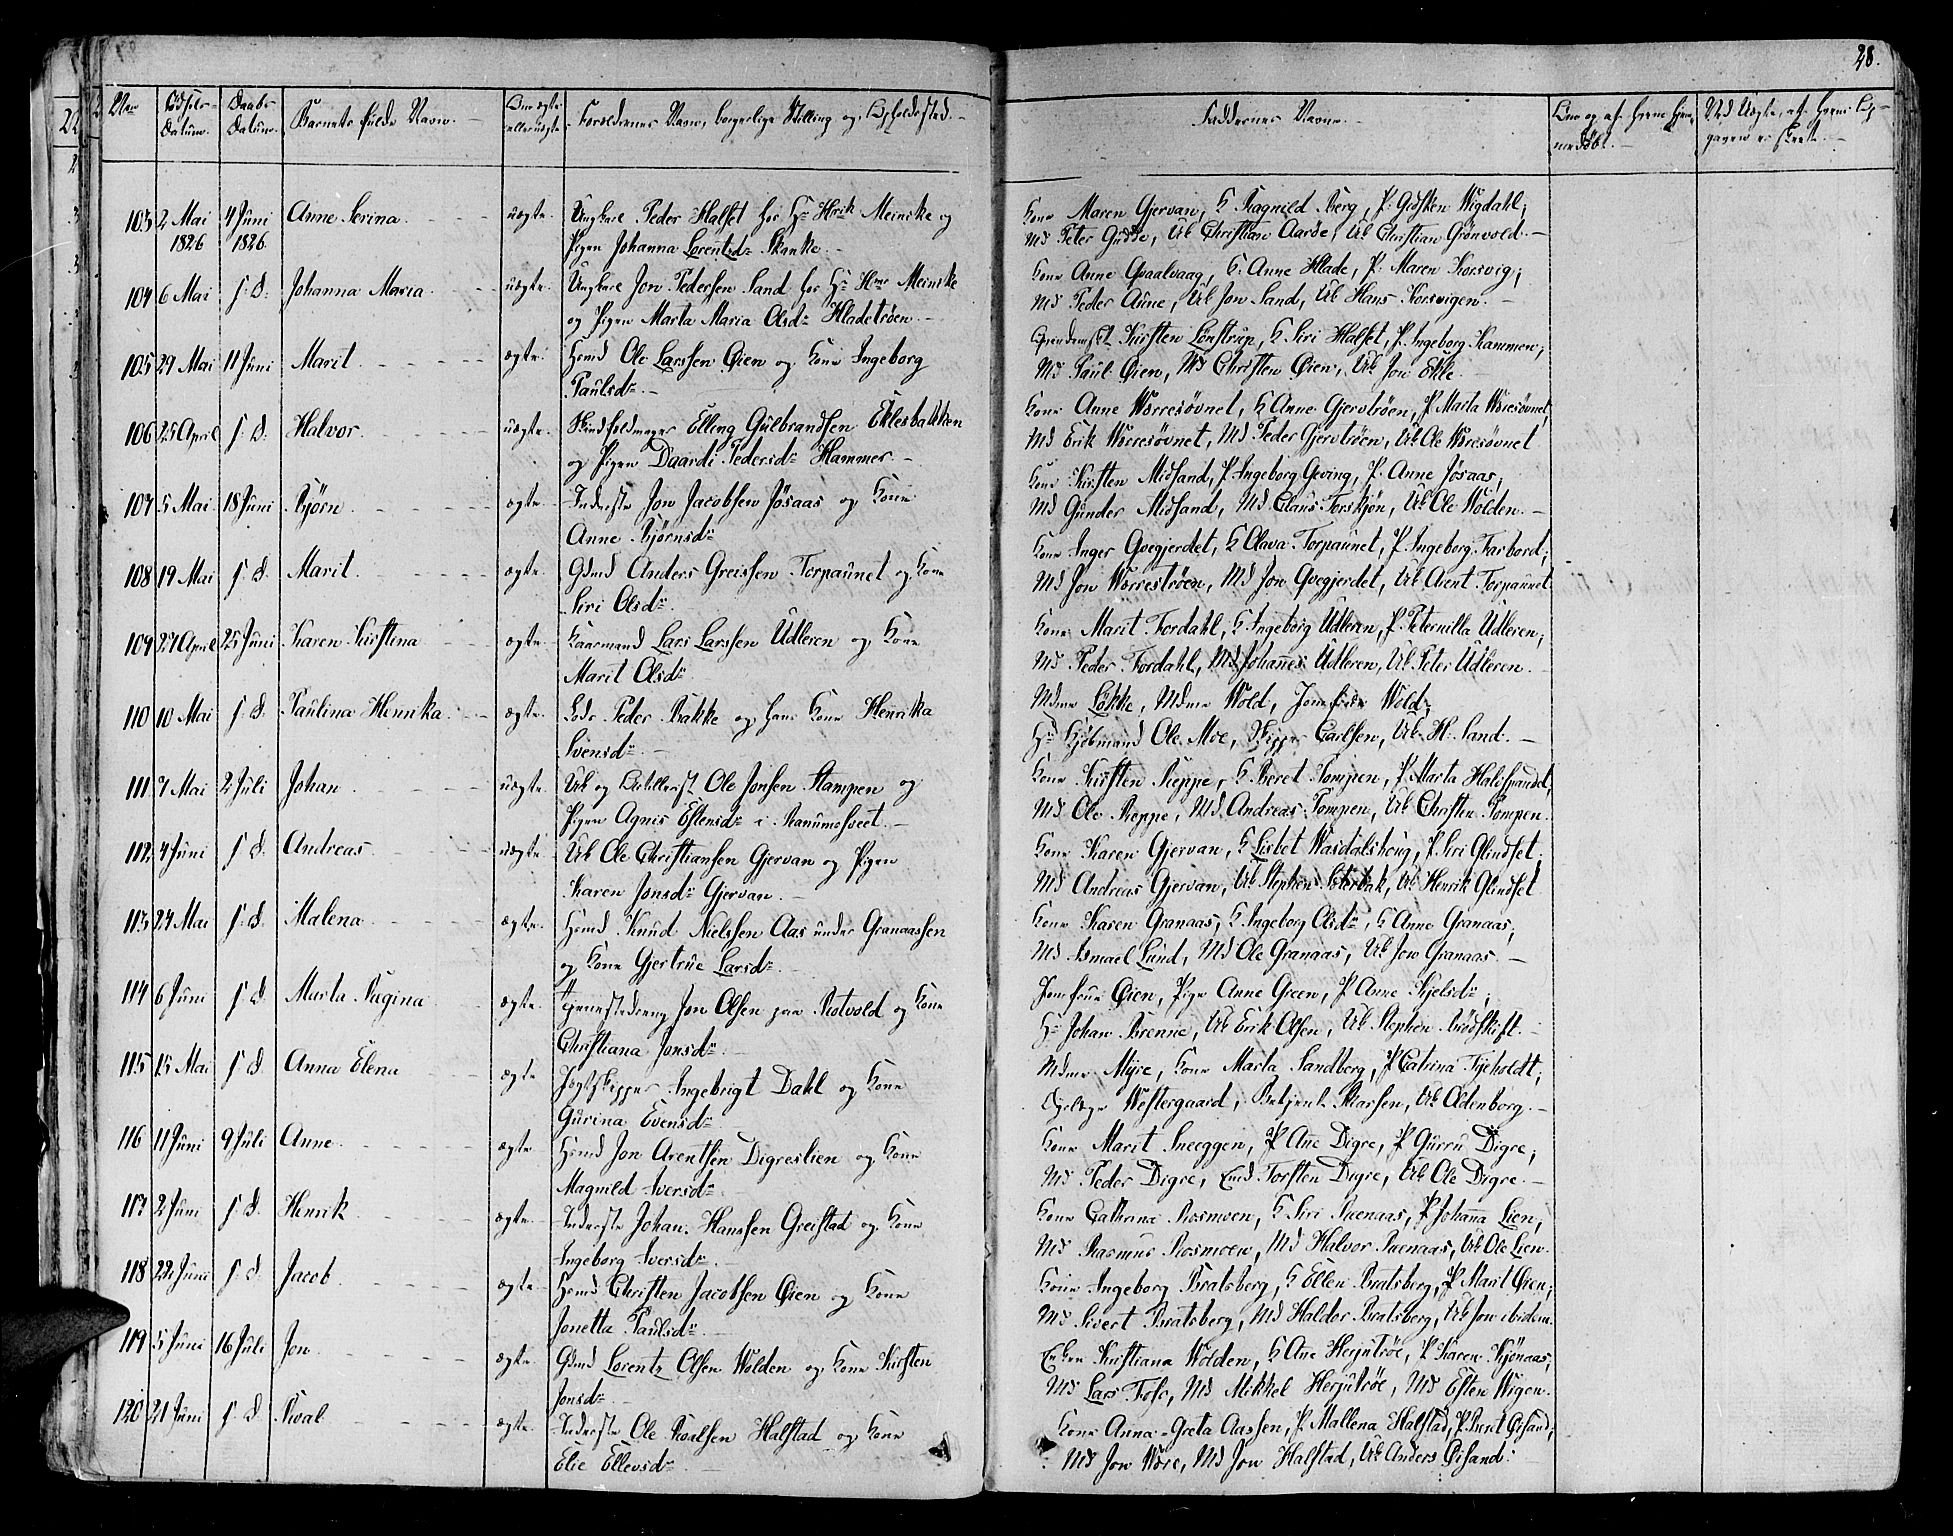 28.
No
Födsels-
Datum.
Daabs
Datum.
Barnets fulde Navn.
Om ægte
eller uægte
Forældrenes Navn, borgerlige Stilling og Opholdssted.
Faddernes Navne.
103 2 Mai 4 Juni Anne Serina. uægte. Ungkarl Peder Halset hos Hr Hrik Meincke og
1826 1826 Pigen Johanna Lorentzdr Skanke.
Kone Maren Gjervan, K Ragnild Berg, P. Gidsken Wigdahl;
Md Peter Gudde, Uk Christian Aarde, Uk Christian Grönvold.
104 6 Mai s. d. Johanna Maria. uægte. Ungkarl Jon Pedersen Sand hos Hr Hnr Meincke
og Pigen Marta Maria Olsdr Hladetröen.
Kone Anne Qvaalvaag, K. Anne Hlade, P. Maren Korsvig;
Md Peder Aune, Uk Jon Sand, Uk Hans Korsvigen.
105 29 Mai 11 Juni Marit. ægte. Hsmd Ole Larssen Öien og Kone Ingeborg
Paulsdr.
Kirsten Lönstrup, K Siri Halset, P. Ingeborg Kammen;
Md Paul Öien, Md Christen Öien, Uk Jon Ekle.
106 25 April s. d. Halvor. uægte. Elling Gulbrandsen Eklesbakken
og Pigen Daardi Pedersdr Hammer.
Kone Anne Worresövnet, K Anne Gjervtröen, P Marta Worresövnet,
Md Erik Worresövnet, Md Peder Gjervtröen, Uk Ole Worresövnet
107 5 Mai 18 Juni Björn. ægte. Inderste Jon Jacobsen Jösaas og Kone
Anne Björnsdr
Kone Kirsten Midsand, P. Ingeborg Geving, P. Anne Jösaas;
Md Gunder Midsand, Md Claus Torskjön, Uk Ole Wolden.
108 19 Mai s. d. Marit. ægte. Gdmd Anders Greissen Torpaunet og Kone
Siri Olsdr.
Kone Inger Gvegjerdet, K Olava Torpaunet, P. Ingeborg Farbord;
Md Jon Worreströen, Md Jon Gvegjerdet, Uk Arent Torpaunet
109 27 April 25 Juni Karen Kirstina ægte. Kaarmand Lars Larssen Udleren og Kone
Marit Olsdr
Kone Marit Fordahl, K Ingeborg Udleren, P. Peternilla Udleren;
Md Peder Fordahl, Md Johannes Udleren, Uk Peter Udleren.
110 10 Mai s. d. Paulina Henrika. ægte. Lods Peder Bakke og hans Kone Henrika
Svensdr.
Mdme Lökke, Mdme Wold, Jomfrue Wold;
Hr Kjöbmand Ole Moe, Skipper Carlsen, Uk H. Sand.
111 7 Mai 2 Juli Johan. uægte. Uk og Ole Jonsen Stampen og
Pigen Agnis Estensdr i Ranumsfeet.
Kone Kirsten Reppe, K. Beret Pompen, P. Marta
Md Ole Reppe, Md Andreas Pompen, Uk Christen Pompen.
112 4 Juni s. d. Andreas. uægte. Uk Ole Christiansen Gjervan og Pigen
Karen Jonsdr Gjervan.
Kone Karen Gjervan, K Lisbet Wasdalshoug, P. Siri Glindset;
Md Andreas Gjervan, Uk Stephen Uk Henrik Glindset
113 24 Mai s. d. Malena. ægte. Hsmd Knud Nielssen Aas under Granaassen
og Kone Gjertrue Larsdr.
Kone Karen Granaas; K Ingeborg Olsdr, K Anne Granaas;
Md Ismael Lund, Md Ole Granaas, Uk Jon Granaas.
114 6 Juni s. d. Marta Ragina. ægte. Tjenestedreng Jon Olsen paa Rotvold og Kone
Christiana Jonsdr.
Jomfrue Öien, Pige Anne Green, P. Anne Kjelsdr;
Hr Johan Brenne, Uk Erik Olsen, Uk Stephen Brödskift.
115 15 Mai s. d. Anna Elena ægte Jagtskipper Ingebrigt Dahl og Kone
Gurina Evensdr.
Mdme Myre, Kone Marta Sandberg, P Catrina Tyeholdt;
Westergaard, Betjent Uk Oldenborg.
116 11 Juni 9 Juli Anne. ægte Hsmd Jon Arentsen Digreslien og Kone
Magnild Iversdr.
Kone Marit Sneeggen, P. Ane Digre, P Gurru Digre;
Md Peder Digre, Torsten Digre, Uk Ole Digre.
117 2 Juni s. d. Henrik ægte. Inderste Johan Hanssen Greistad og Kone
Ingeborg Iversdr.
Kone Cathrina Rosmoen, K. Siri Ruenaas, P Johanna Lien;
Md Rasmus Rosmoen, Md Halvor Ruenaas, Uk Ole Lien.
118 22 Juni s. d. Jacob. ægte Hsmd Christen Jacobsen Öien og Kone
Jonetta Paulsdr.
Kone Ingeborg Bratsberg, K Ellen Bratsberg, P Marit Öien;
Md Sivert Bratsberg, Md Haldor Bratsberg, Uk Jon ibidem.
119 5 Juni 16 Juli Jon. ægte. Gdmd Lorentz Olsen Wolden og Kone Kirsten
Jonsdr.
Enken Kristiana Wolden, K Ane Herjutröe, P. Karen Kjönaas;
Md Lars Fosse, Md Mikkel Herjutröe, Md Esten Wigen.
120 21 Juni s. d. Roal ægte. Inderste Ole Roalsen Halstad og Kone
Elie Ellevsdr.
Kone Anna-Greta Aassen, P. Mallena Halstad, P. Berit Öisand;
Md Jon Wore, Md Jon Halstad, Uk Anders Öisand.